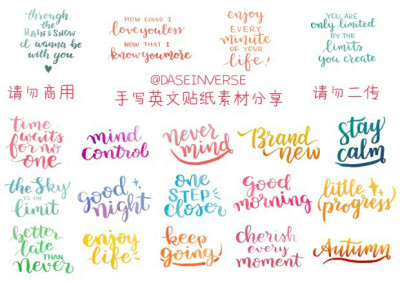 through
the
RAIN & SNOW
I wanna be
with you
HOW COULD I
love you less
NOW THAT I
know you more
ENJOY
EVERY
minute
OF YOUR
life!
YOU ARE
ONLY LIMITED
BY THE
LIMITS
YOU CREATE
@DASEINVERSE
请勿商用
手写英文贴纸素材分享
请勿二传
time
waits
for no
one
mind
control
never
mind
Brand
new
stay
calm
the Sky
IS THE
limit
good
night
one
STEP
closer
good
morning
little
progress
better
late
THAN
never
enjoy
life
keep
going!
cherish
every
moment
Autumn